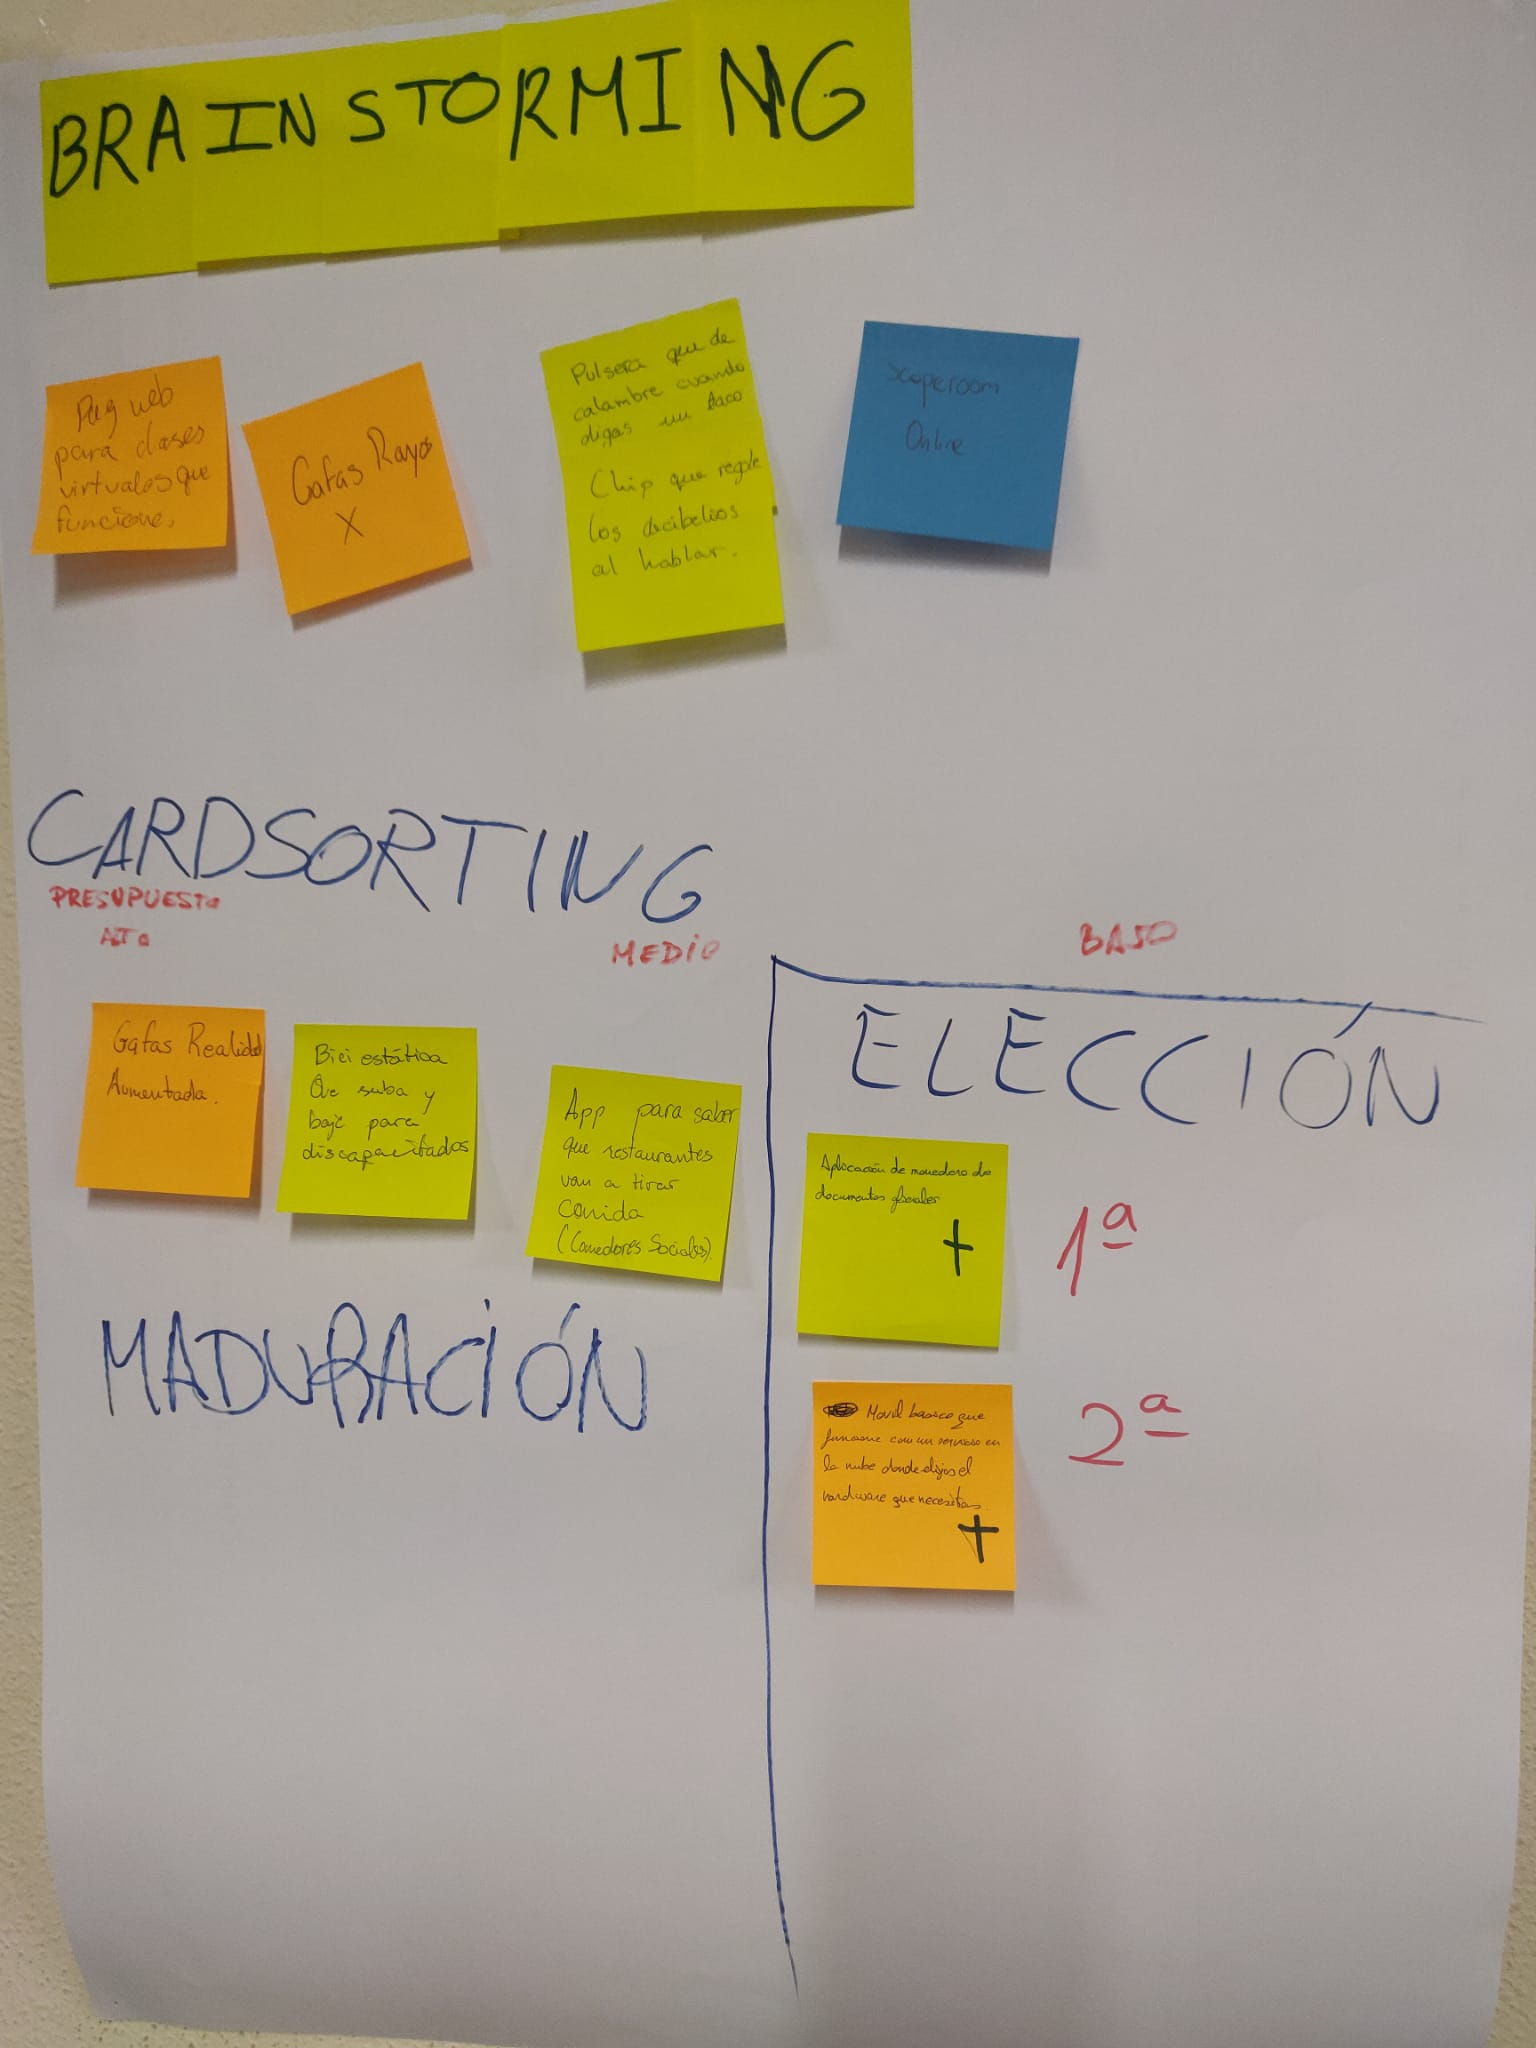 BRAINSTORMING
Pag web
para clases
virtuales que
funcione.
Gafas Rayos
X
Pulsera que de
calambre cuando
digas un taco
Chip que regule
los decibelios
al hablar.
Scaperoom
Online
CARDSORTING
PRESUPUESTO
ALTO
MEDIO
BAJO
Gafas Realidad
Aumentada.
Bici estática
Que suba y
baje para
discapacitados
App para saber
que restaurantes
van a tirar
comida
(Comedores Sociales).
ELECCIÓN
Aplicación de monedero de
documentos oficiales
+
1ª
Movil basico que
funcione con un servicio en
la nube donde elijas el
hardware que necesitas.
+
2ª
MADURACIÓN